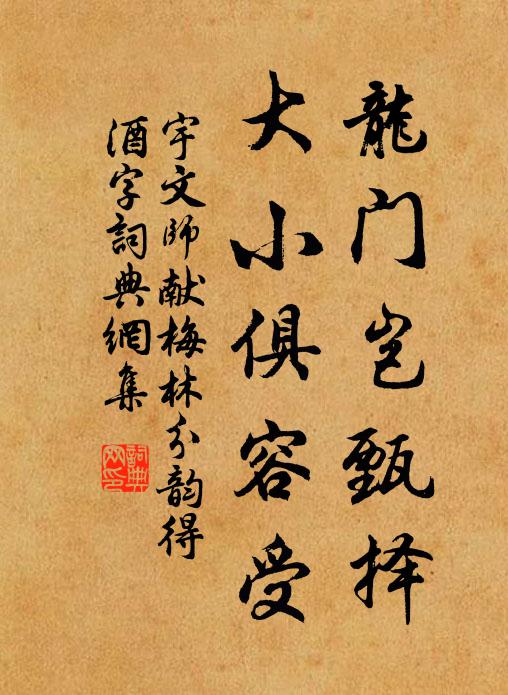 龍门岂甄择
大小俱容受
宇文师献梅林分韵得
酒字詞典網集
詞典
网印